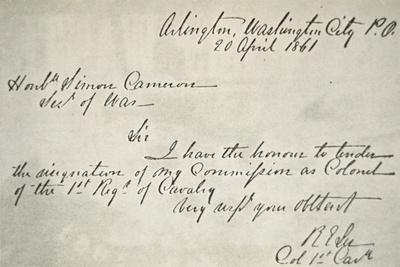 Arlington, Washington City P.O.
20 April 1861
Honble Simon Cameron
Secy of War
Sir
I have the honour to tender
the resignation of my Commission as Colonel
of the 1st Regt of Cavalry
Very resply your obt Servt
R E Lee
Col 1st Cavy